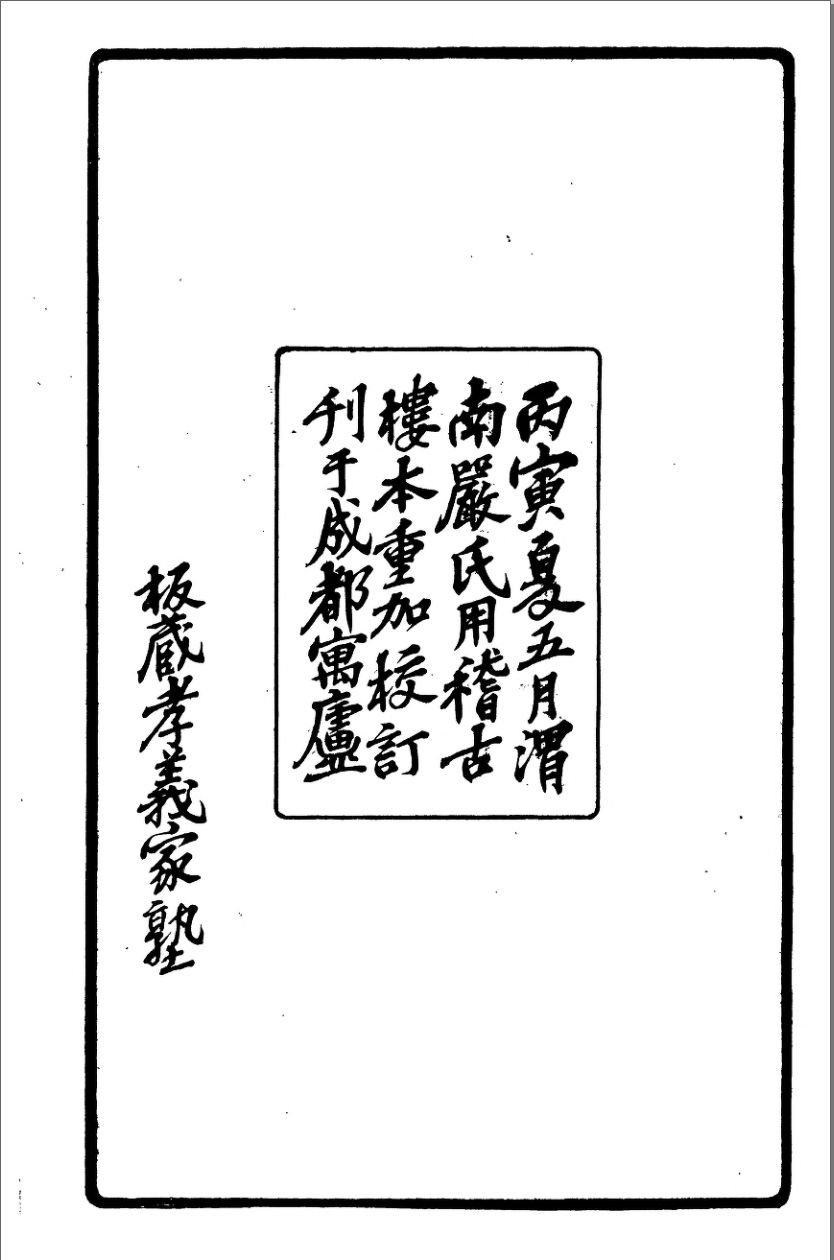 丙寅夏五月渭
南嚴氏用稽古
樓本重加校訂
刊于成都寓廬
板藏孝義家塾